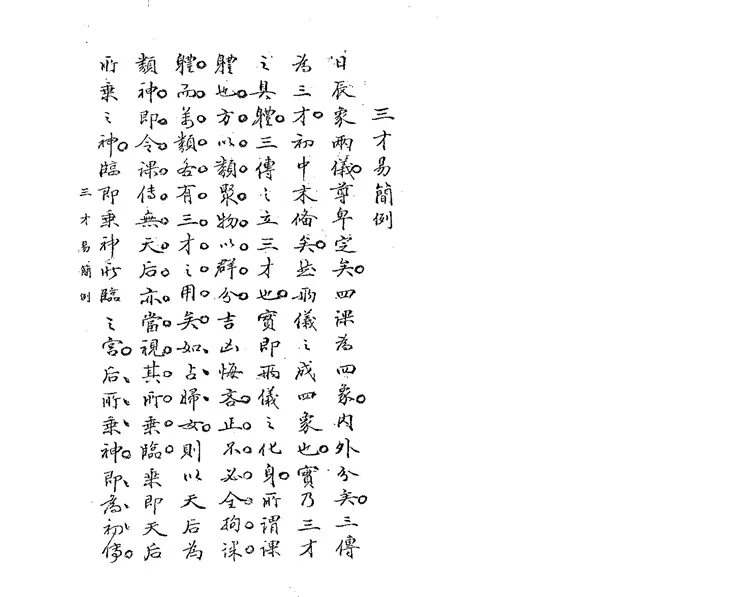 三才易簡例
日辰象兩儀。尊卑定矣。四課為四象。內外分矣。三傳
為三才。初中末俻矣。然兩儀之成四象也。實乃三才
之具體。三傳之立三才也。實即兩儀之化身。所謂課
體也。方以類聚。物以群分。吉凶悔吝。正不必全拘课
體。而萬類各有三才之用矣。如占婦女則以天后為
類神。即令课傳無天后。亦當視其所乘臨。乘即天后
所乘之神。臨即乘神所臨之宮。后所乘神。即為初傳。
三才易簡例